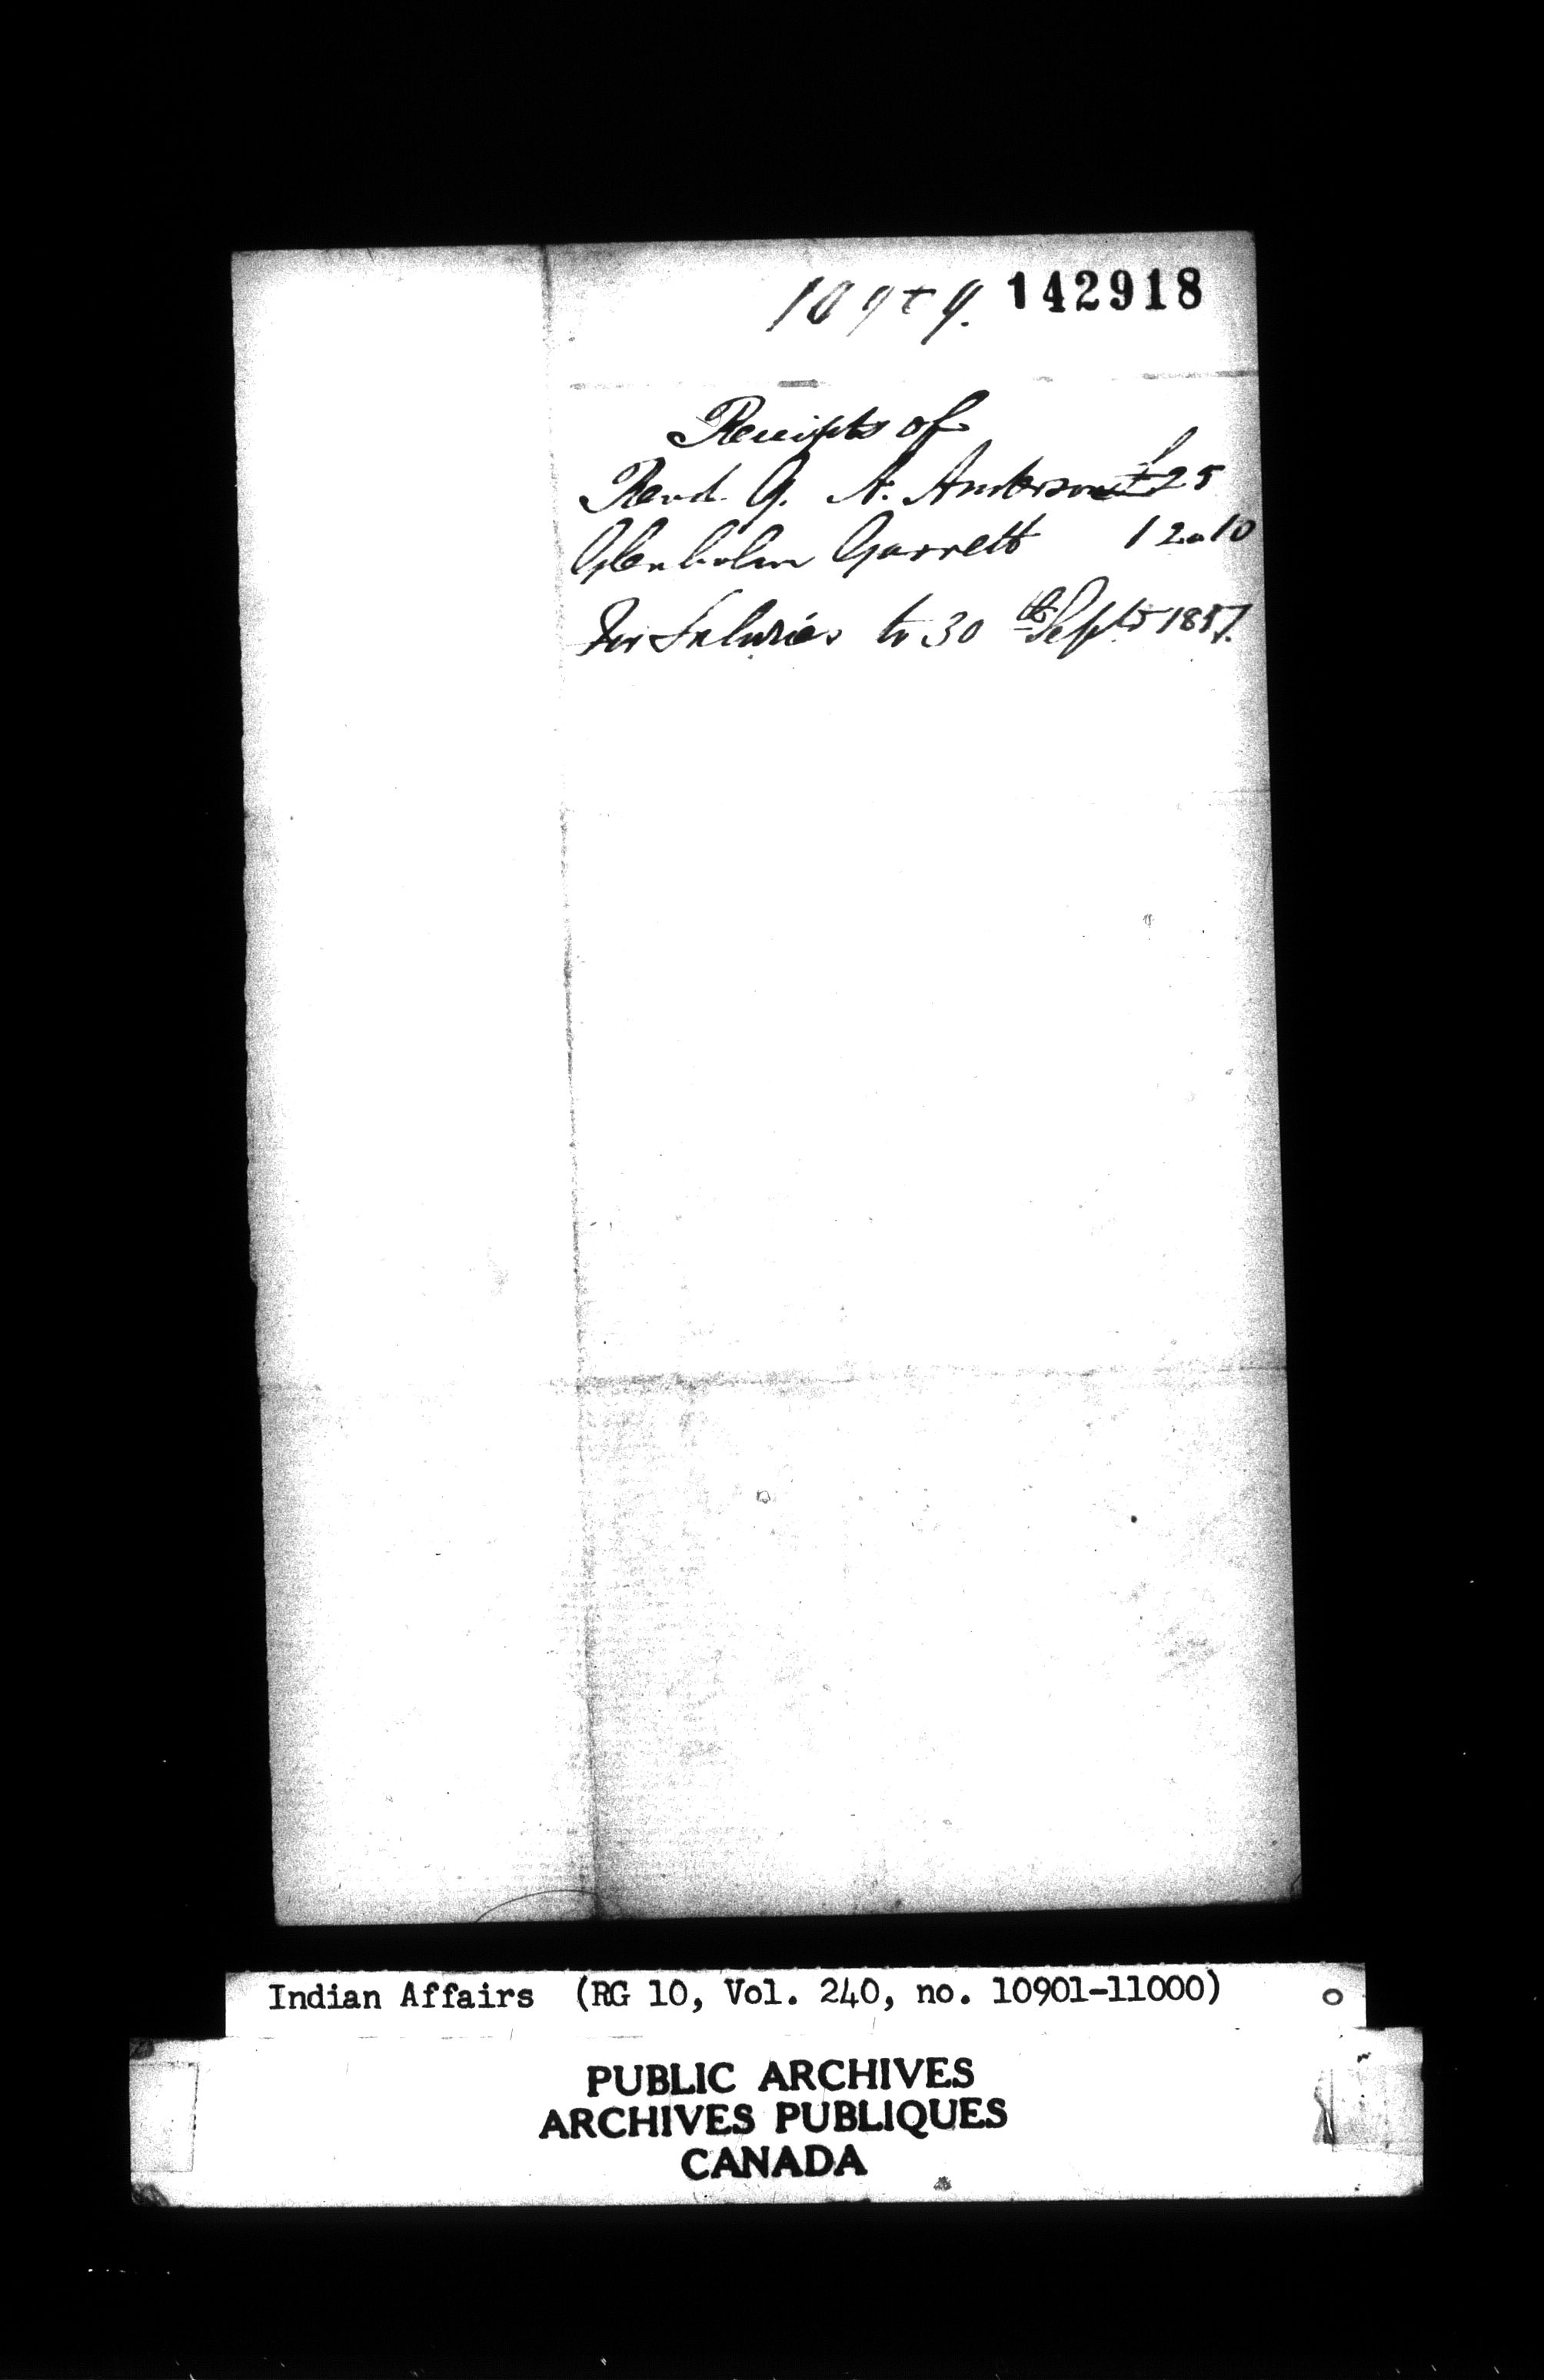 109 9. 142918
Receipts of
Revd. G. A. Anderson £25
Glenholm Garrett 12 " 10
For Salaries to 30th Sept 1857.
Indian Affairs (RG 10, Vol. 240, no. 10901-11000)
PUBLIC ARCHIVES
ARCHIVES PUBLIQUES
CANADA